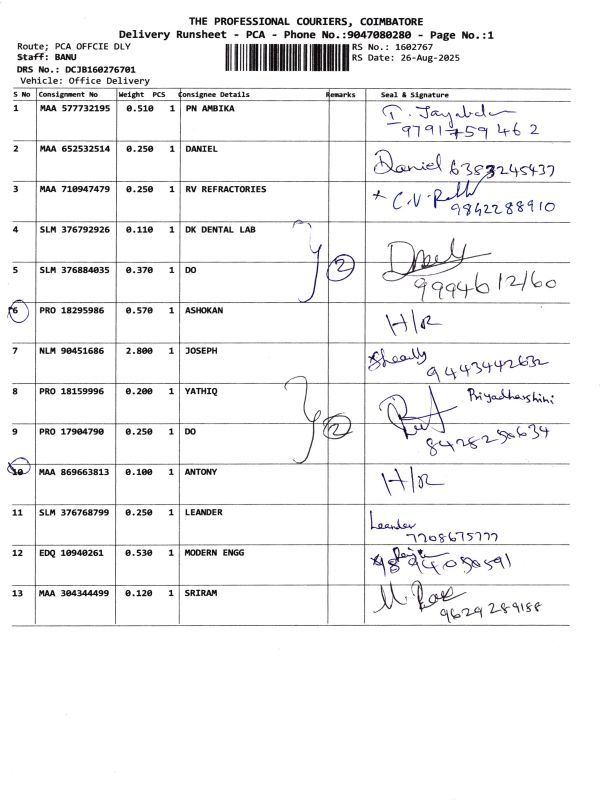 THE PROFESSIONAL COURIERS, COIMBATORE
Delivery Runsheet - PCA - Phone No.:9047080280 - Page No.:1
Route; PCA OFFCIE DLY RS No.: 1602767
Staff: BANU RS Date: 26-Aug-2025
DRS No.: DCJB160276701
Vehicle: Office Delivery
S No Consignment No Weight PCS Consignee Details Remarks Seal & Signature
1 MAA 577732195 0.510 1 PN AMBIKA
9791759462
2 MAA 652532514 0.250 1 DANIEL Daniel 6383245437
3 MAA 710947479 0.250 1 RV REFRACTORIES
9842288910
4 SLM 376792926 0.110 1 DK DENTAL LAB
2
5 SLM 376884035 0.370 1 DO
9994612160
6 PRO 18295986 0.570 1 ASHOKAN H/R
7 NLM 90451686 2.800 1 JOSEPH
9443442632
8 PRO 18159996 0.200 1 YATHIQ Priyadharshini
2
9 PRO 17904790 0.250 1 DO
8428250634
10 MAA 869663813 0.100 1 ANTONY H/R
11 SLM 376768799 0.250 1 LEANDER Leander
7708675777
12 EDQ 10940261 0.530 1 MODERN ENGG
9894050591
13 MAA 304344499 0.120 1 SRIRAM
9629289188